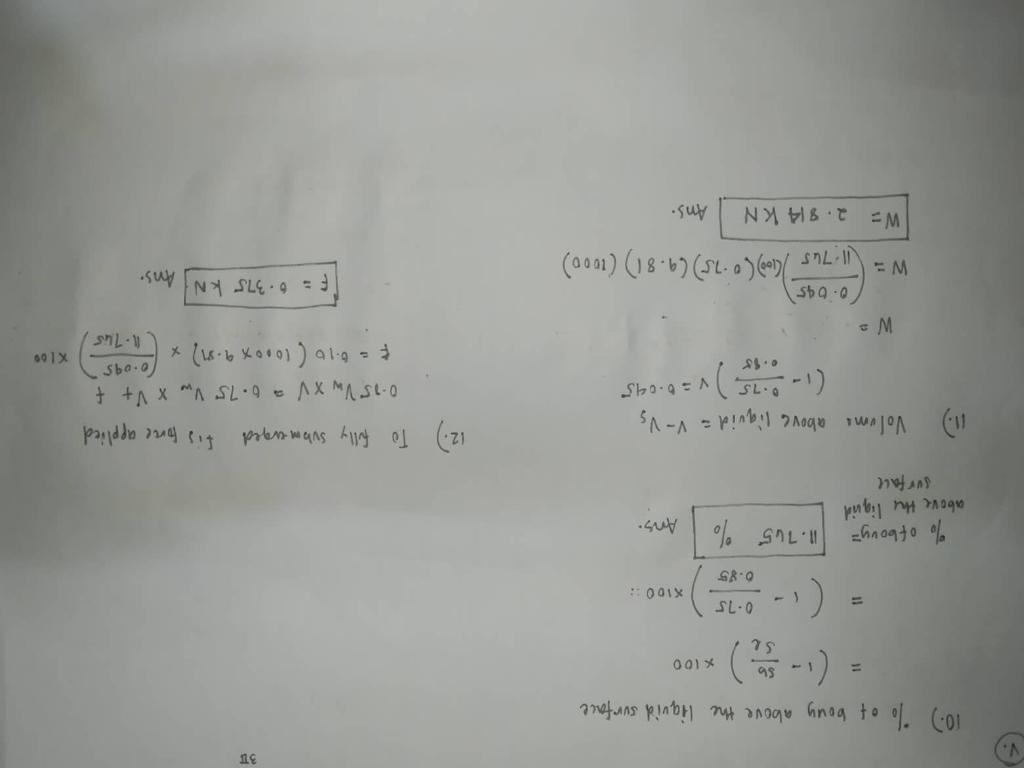 V.
10.) % of bouy above the liquid surface
= (1 - Sb/Sl) x100
= (1 - 0.75/0.85) x100 ::
% of bouy = 11.765 % Ans.
above the liquid
surface
11.) Volume above liquid = V-Vs
(1 - 0.75/0.85) V = 0.045
W =
W = (0.045/11.765)(100)(0.75)(9.81)(1000)
W = 2.814 KN Ans.
12.) To fully submerged f is force applied
0.85 Vw XV = 0.75 Vw X V + f
f = 0.10 (1000 x 9.81) x (0.045/11.765) x100
f = 0.375 KN Ans.